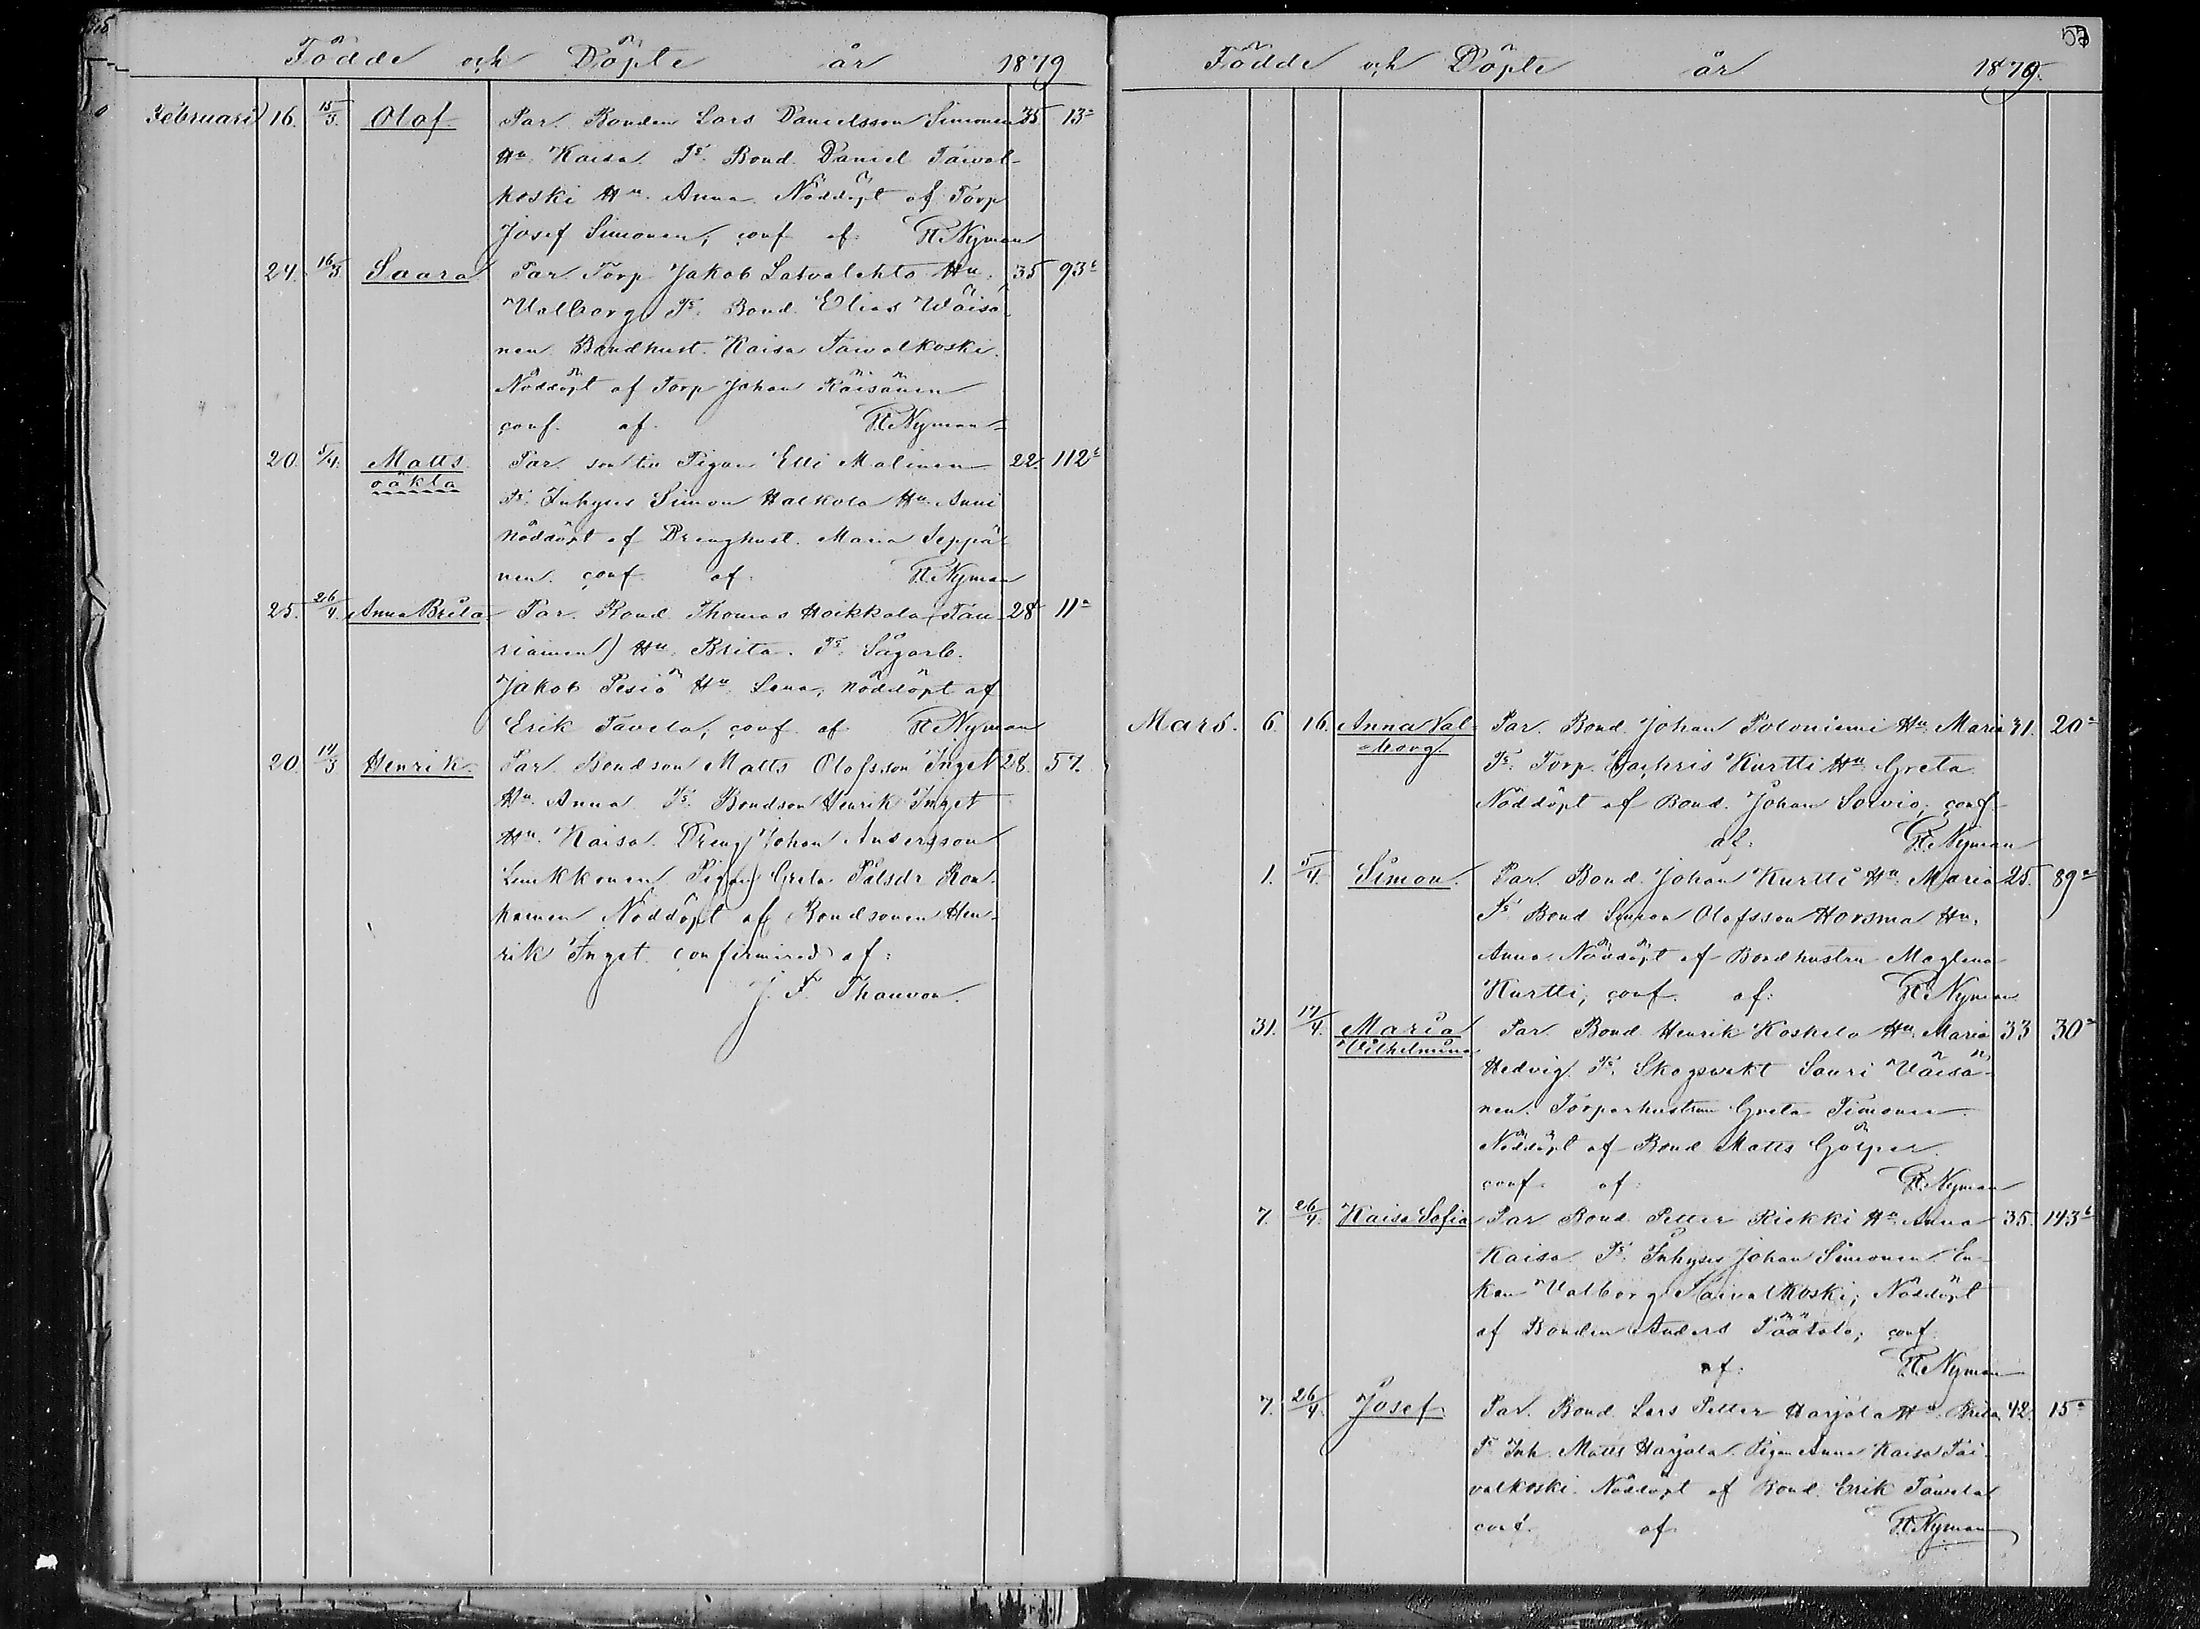 Födde och Döpte år 1879
Februari 16. 15/3. Olof Par. Bonden Lars Danielsson Simonen 35 13a
Hu. Kaisa. Fs. Bond. Daniel Taival-
koski Hu. Anna. Nöddöpt af Torp
Josef Simonen, conf. af H. Nyman
24. 16/3 Saara Par. Torp. Jakob Latvalehto Hu. 35 93b
Valborg Fs. Bond. Elias Wäisä-
nen Bondhust. Kaisa Taivalkoski.
Nöddöpt af Torp Johan Räisänen
conf. af. H. Nyman
20. 5/4. Matts Par. son till Pigan Elli Malinen 22. 112b
oäkta
Fs. Inhyses Simon Halkola Hu. Anni
nöddöpt af Drenghust. Maria Seppä-
nen. conf. af. H. Nyman
25. 26/4. Anna Brita Par. Bond. Thomas Hoikkala (Tau- 28 11a
riainen) Hu. Brita. Fs. Sågarb.
Jakob Pesiö Hu. Lena, nöddöpt af
Erik Tavela, conf. af H. Nyman
20. 14/3 Henrik. Par. Bondson Matts Olofsson Inget 28. 57.
Hu. Anna Fs. Bondson Henrik Inget
Hu. Kaisa. Dreng Johan Andersson
Pigan Greta Pålsdr
Nöddöpt af Bondsonen Hen-
rik Inget. confirmired af:
J. F. Thauvon.
Födde och Döpte år 1879.
Mars. 6. 16. Anna Val- Par. Bond. Johan Poloniemi Hu. Maria 31. 20a
borg Fs. Torp. Zachris Kurtti Hu. Greta
Nöddöpt af Bond. Johan Soivio, conf.
af: H. Nyman
1. 5/4. Simon. Par. Bond. Johan Kurtti Hu. Maria 25. 89a
Fs. Bond Simon Olofsson Horsma Hu.
Anna. Nöddöpt af Bondhustru Maglena
Kurtti, conf. af: H. Nyman
31. 17/4. Maria Par. Bond Henrik Koskelo Hu. Maria 33 30a
Vilhelmina
Hedvig. Fs. Skogsvakt Sauri Väisä-
nen. Torparhustrun Greta Simonen
Nöddöpt af Bond Matts Gölper.
conf. af: H. Nyman
7. 26/4. Kaisa Sofia Par Bond. Petter Riekki Hu. Anna 35. 143b
Kaisa Fs. Inhyses Johan Simonen En-
kan Valborg Taivalkoski; Nöddöpt
af Bonden Anders Päätalo; conf.
af: H. Nyman
7. 26/4. Josef Par. Bond. Lars Petter Harjola Hu. Brita 42. 15a
Fs Inh. Matts Harjola. Pigan Anna Kaisa Tai-
valkoski. Nöddöpt af Bond. Erik Tavela
conf. af H. Nyman